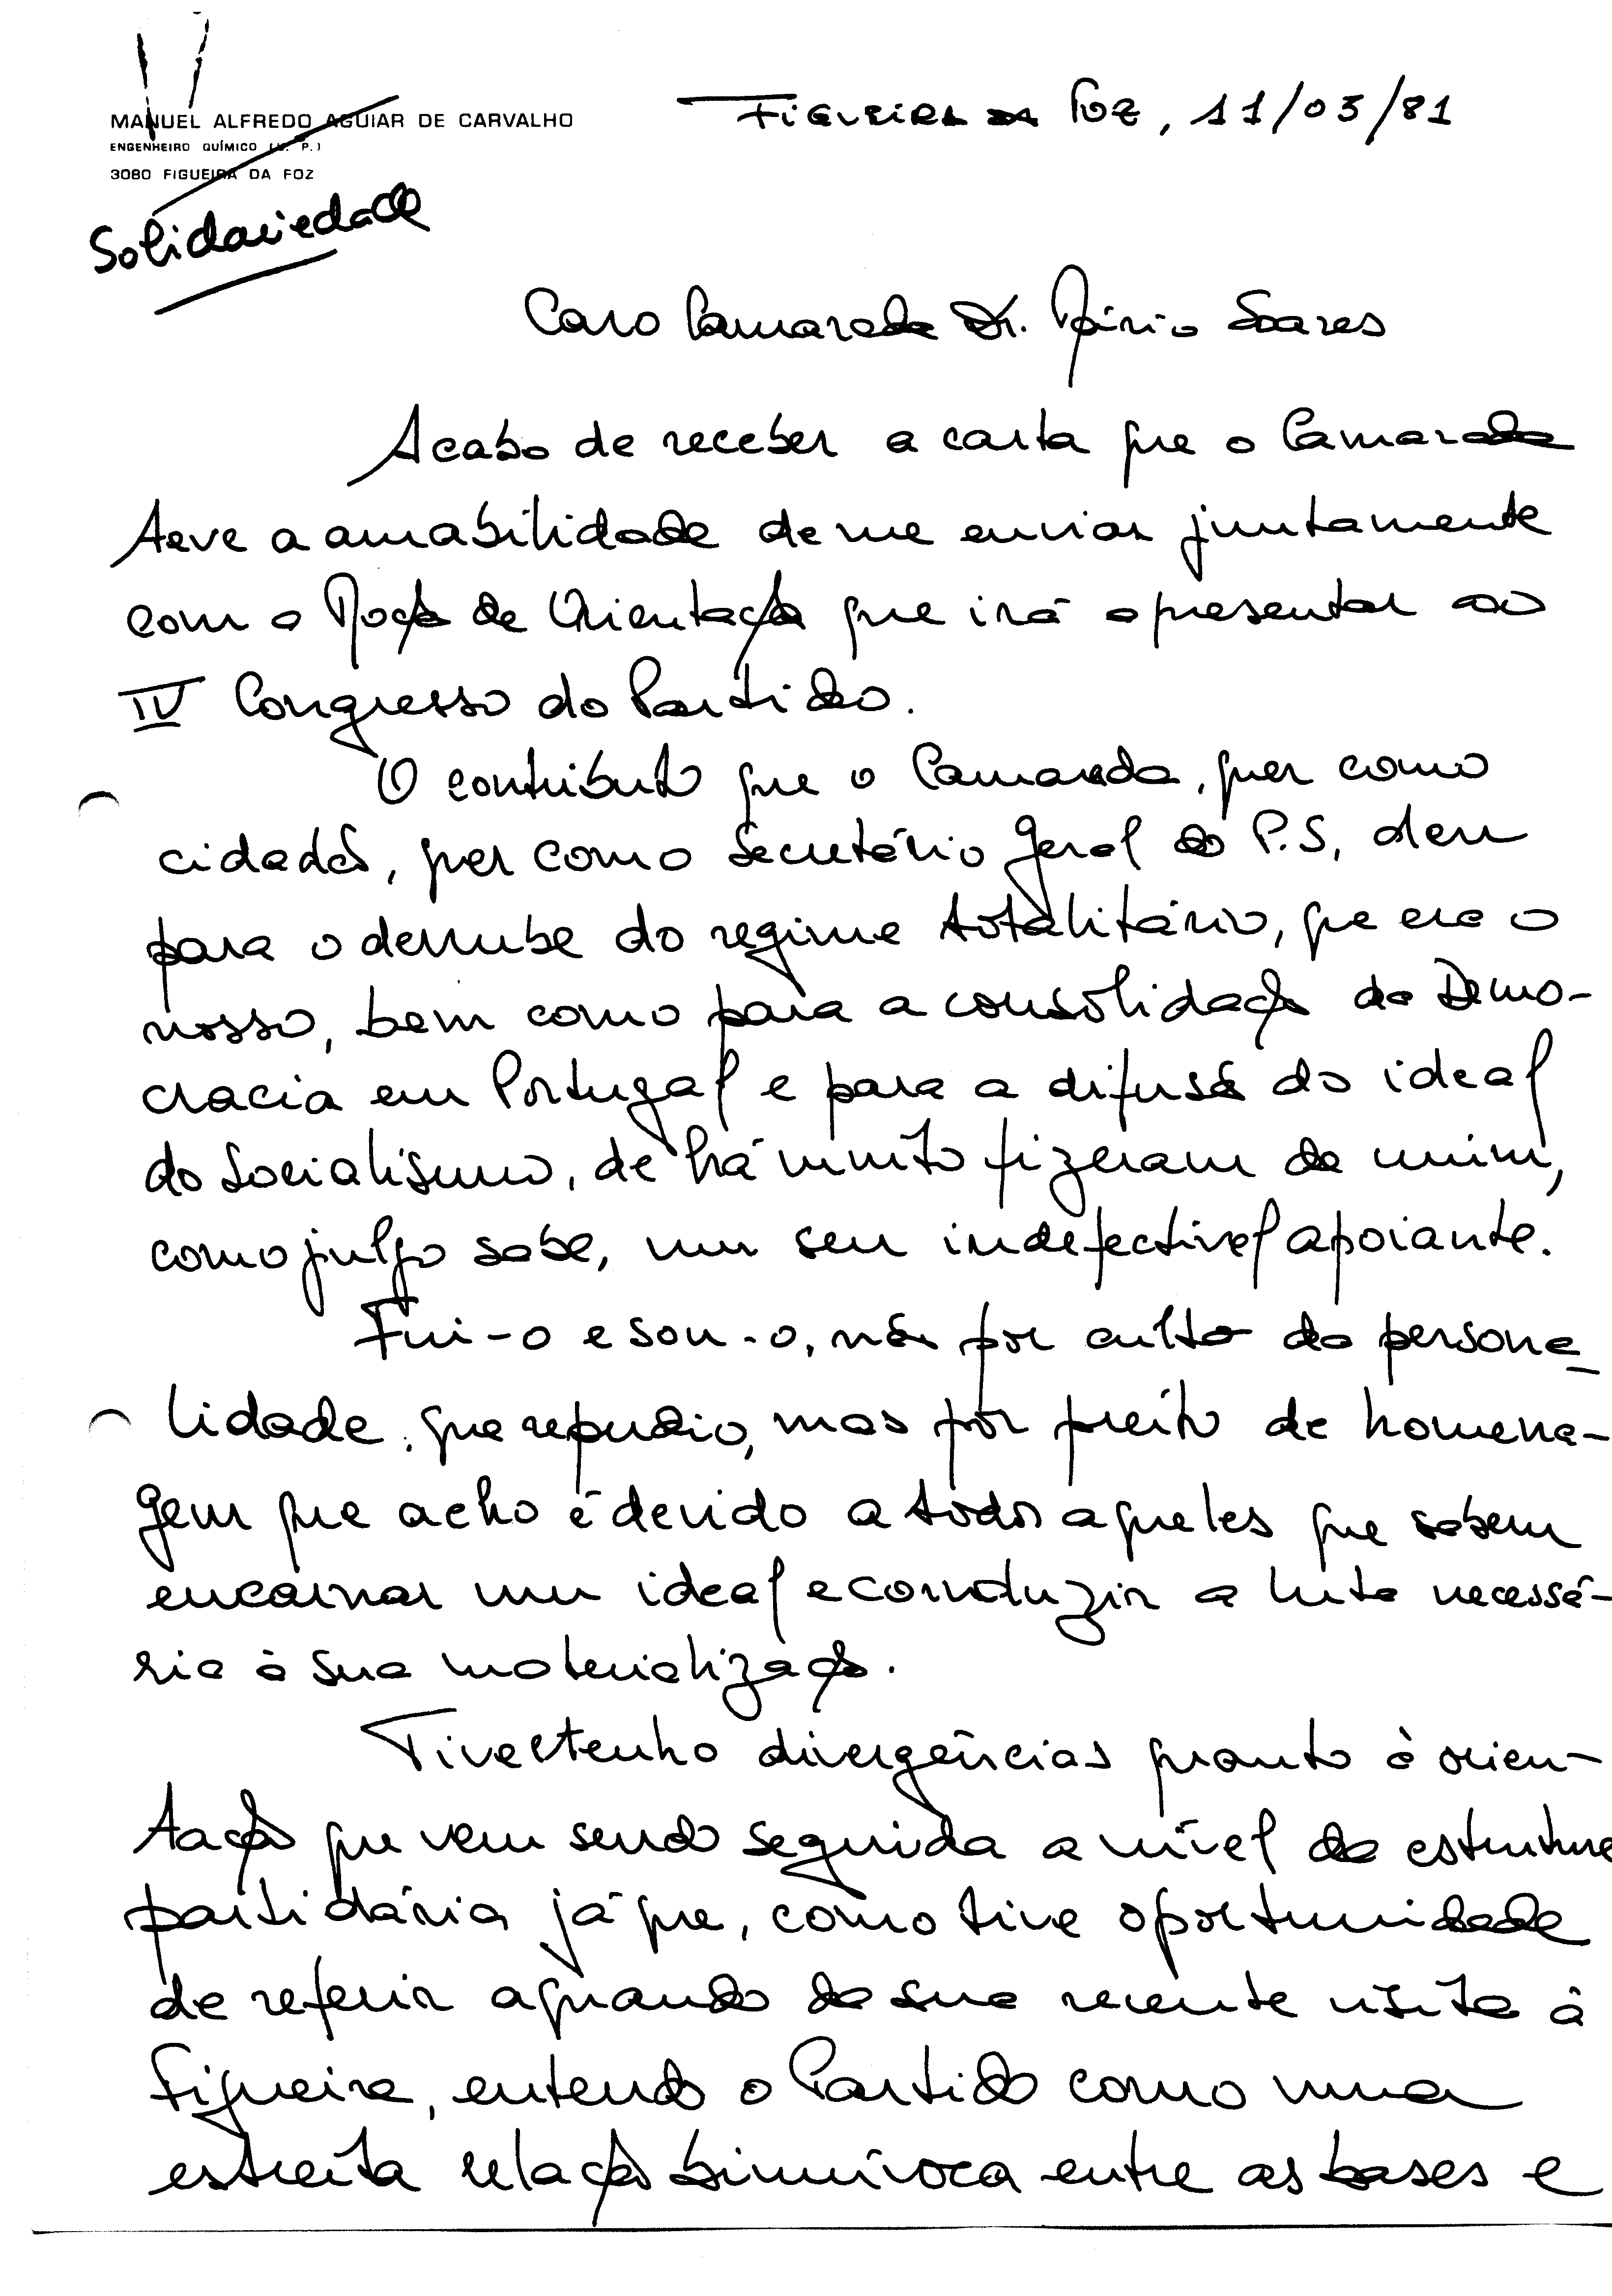 MANUEL ALFREDO AGUIAR DE CARVALHO
ENGENHEIRO QUÍMICO (U. P.)
3080 FIGUEIRA DA FOZ
FIGUEIRA DA FOZ, 11/03/81
Solidariedade
Caro Camarada Dr. Mário Soares
Acabo de receber a carta que o Camarada
teve a amabilidade de me enviar juntamente
com a Moção de Orientação que irá apresentar ao
IV Congresso do Partido.
O contributo que o Camarada, quer como
cidadão, quer como Secretário Geral do P.S, deu
para o derrube do regime totalitário, que era o
nosso, bem como para a consolidação da Demo-
cracia em Portugal e para a difusão do ideal
do Socialismo, de há muito fizeram de mim,
como julgo sabe, um seu indefectível apoiante.
Fui-o e sou-o, não por culto da persona-
lidade, que repudio, mas por preito de homena-
gem que acho é devido a todos aqueles que sabem
encarnar um ideal e conduzir a luta necessá-
ria à sua materialização.
Tive e tenho divergências quanto à orien-
tação que vem sendo seguida a nível da estrutura
partidária já que, como tive oportunidade
de referir aquando da sua recente visita à
Figueira, entendo o Partido como uma
estreita relação biunívoca entre as bases e